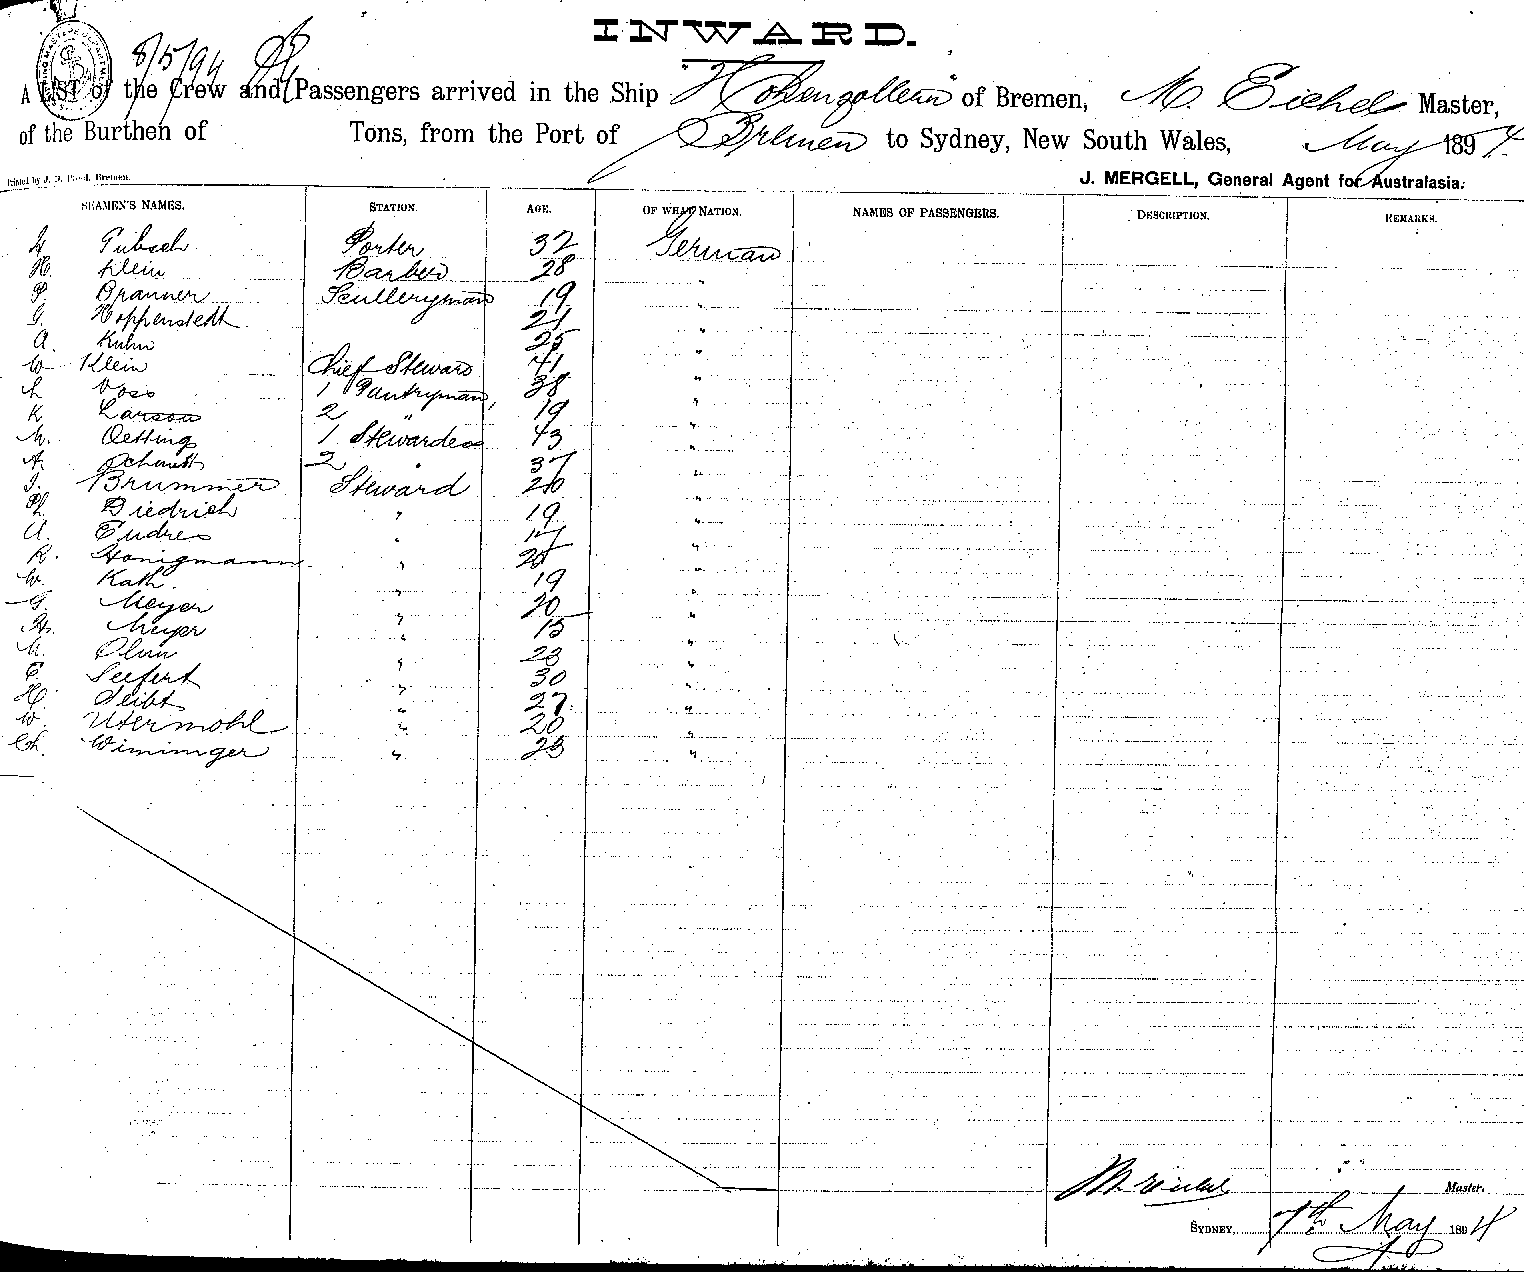 INWARD.
8/5/94
A LIST of the Crew and Passengers arrived in the Ship "Hohenzollern" of Bremen, M Eichel Master,
of the Burthen of Tons, from the Port of Bremen to Sydney, New South Wales, May 1894.
Printed by J. D. Bremen.
J. MERGELL, General Agent for Australasia.
SEAMEN'S NAMES. STATION. AGE. OF WHAT NATION. NAMES OF PASSENGERS. DESCRIPTION. REMARKS.
Porter 32 German
H. Klein Barber 28 "
P. Branner Sculleryman 19 "
G. Hoppenstedt 21 "
A. Kuhn 25 "
W Klein Chief Steward 41 "
L Voss 1 Pantryman, 38 "
K Larson 2 " 19 "
M. Oetting 1 Stewardess 43 "
A. Schmidt 2 " 37 "
J. Brummer Steward 20 "
Ph. Diedrich " 19 "
A. Endres " 17 "
R. Honigmann " 25 "
W. Kath " 19 "
G. Meyer " 20 "
H. Meyer " 15 "
" 23 "
E. Seifert " 30 "
H. Seibt " 27 "
W. Utermohl " 20 "
Ch. Wimimger " 23 "
M. Eichel Master.
SYDNEY, 7th May 1894